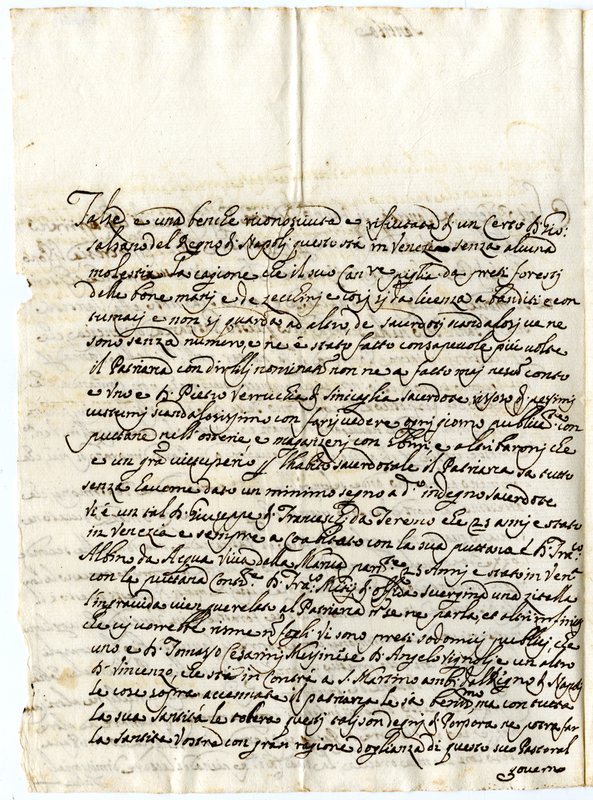 e una benche riconosciuta e rifiutata d un Certo D. Gio:
del Regno di Napoli questo sta in Venezia senza alcuna
molestia la cagione che il suo Can.re piglia da preti foresti
delle bone manj e de zecchinj e cosj si da licenza a banditi e con
tumacj e non si guarda ad altro, de sacerdotj scandalosj ve ne
sono senza numero, e ne è stato fatto consapevole più volte
il Patriarca con dirlilj nominatj non ne a fatto maj nesun conto
e uno e D. Pietro Verrucchia d Sinicaglia Sacerdote di pessimi
costumi scandalosissimo con farsj vedere ogni giorno publica.te con
puttane nell'osteria e magazzenj con e altri baronj che
e un gra vituperio habito sacerdotale il Patriarca sa tutto
senza haverne dato un minimo segno a d.o indegno sacerdote
Vi è un tal D. Giuseppe d Francesc da Teramo che 23 annj e stato
in Venezia e sempre a Coabitato con la sua puttana D. Fra.co
Albino da Acqua Viva della Marca 23 Annj e stato in Ven.a
con la puttana D. Fra.co d Offida sverginò una zitella
l'ingravida vien querelato al Patriarca n se ne parla, et altri infinitj
che cj vorrebbe risme d foglj. Vi sono preti sodomitj publicj che
uno e D. Tomaso Cesarinj D. Angelo e un altro
D. Vincenzo, che sta in Contra a S. Martino amb. dal Regno d Napolj
le cose sopra accennate il patriarca le sa ben.mo, ma con tutta
la sua Santità le tolera questj talj son degnj d Porpora ne potra far
la Santità Vostra con gran ragione doglianza di questo suo Pastoral
governo